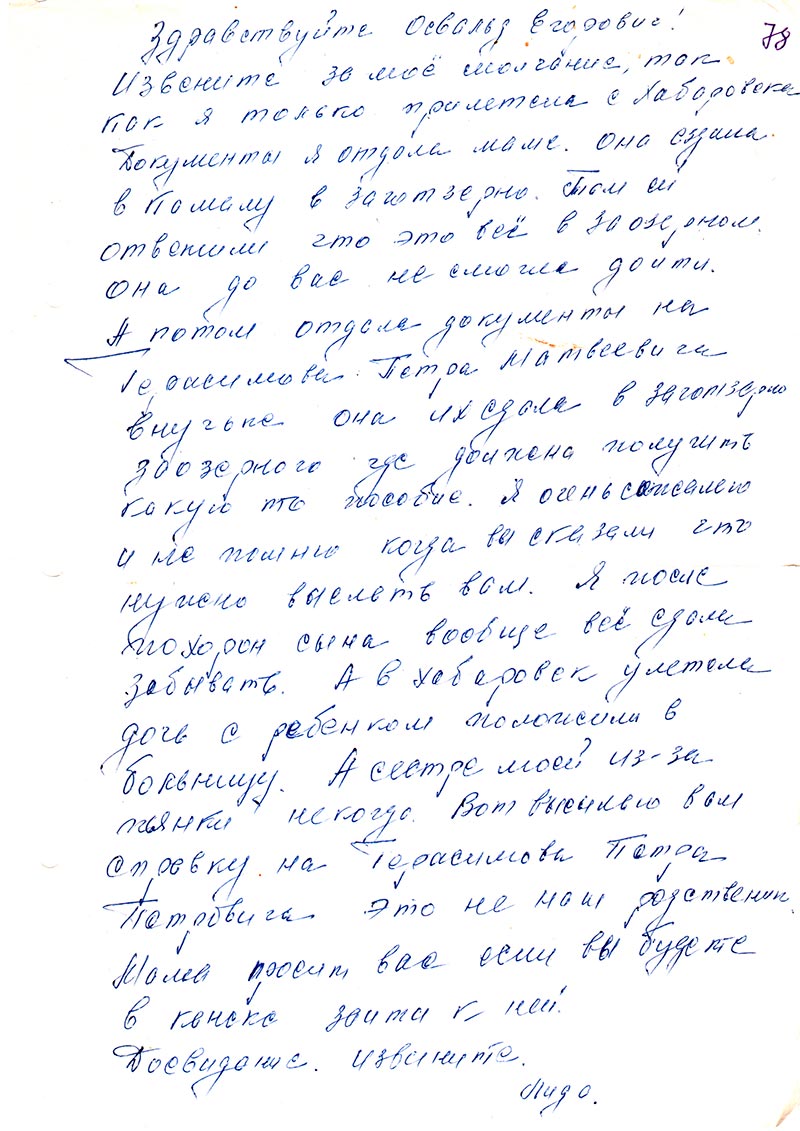 78
Здравствуйте Освальд Егорович!
Извените за моё молчание, так
как я только прилетела с Хабаровска
Документы я отдала маме. она ездила
в Памалу в заготзерно. Там ей
ответили что это всё в Заозерном.
она до вас не смогла дойти.
А потом отдала документы на
Герасимова Петра Матвеевича
внучьке она их сдала в заготзерно
Заозерного где должена получить
какую то пособие. Я очень сожалею
и не помню когда вы сказали что
нужно выслать вам. Я после
похорон сына вообще всё стала
забывать. А в Хабаровск улетала
дочь с ребёнком положили в
больницу. А сестре моей из-за
пьянки некогда. Вот высылаю вам
справку на Герасимова Петра
Петровича это не наш родственник
Мама просит вас если вы будете
в канске зайти к ней.
Досвидание. извените.
Лида.